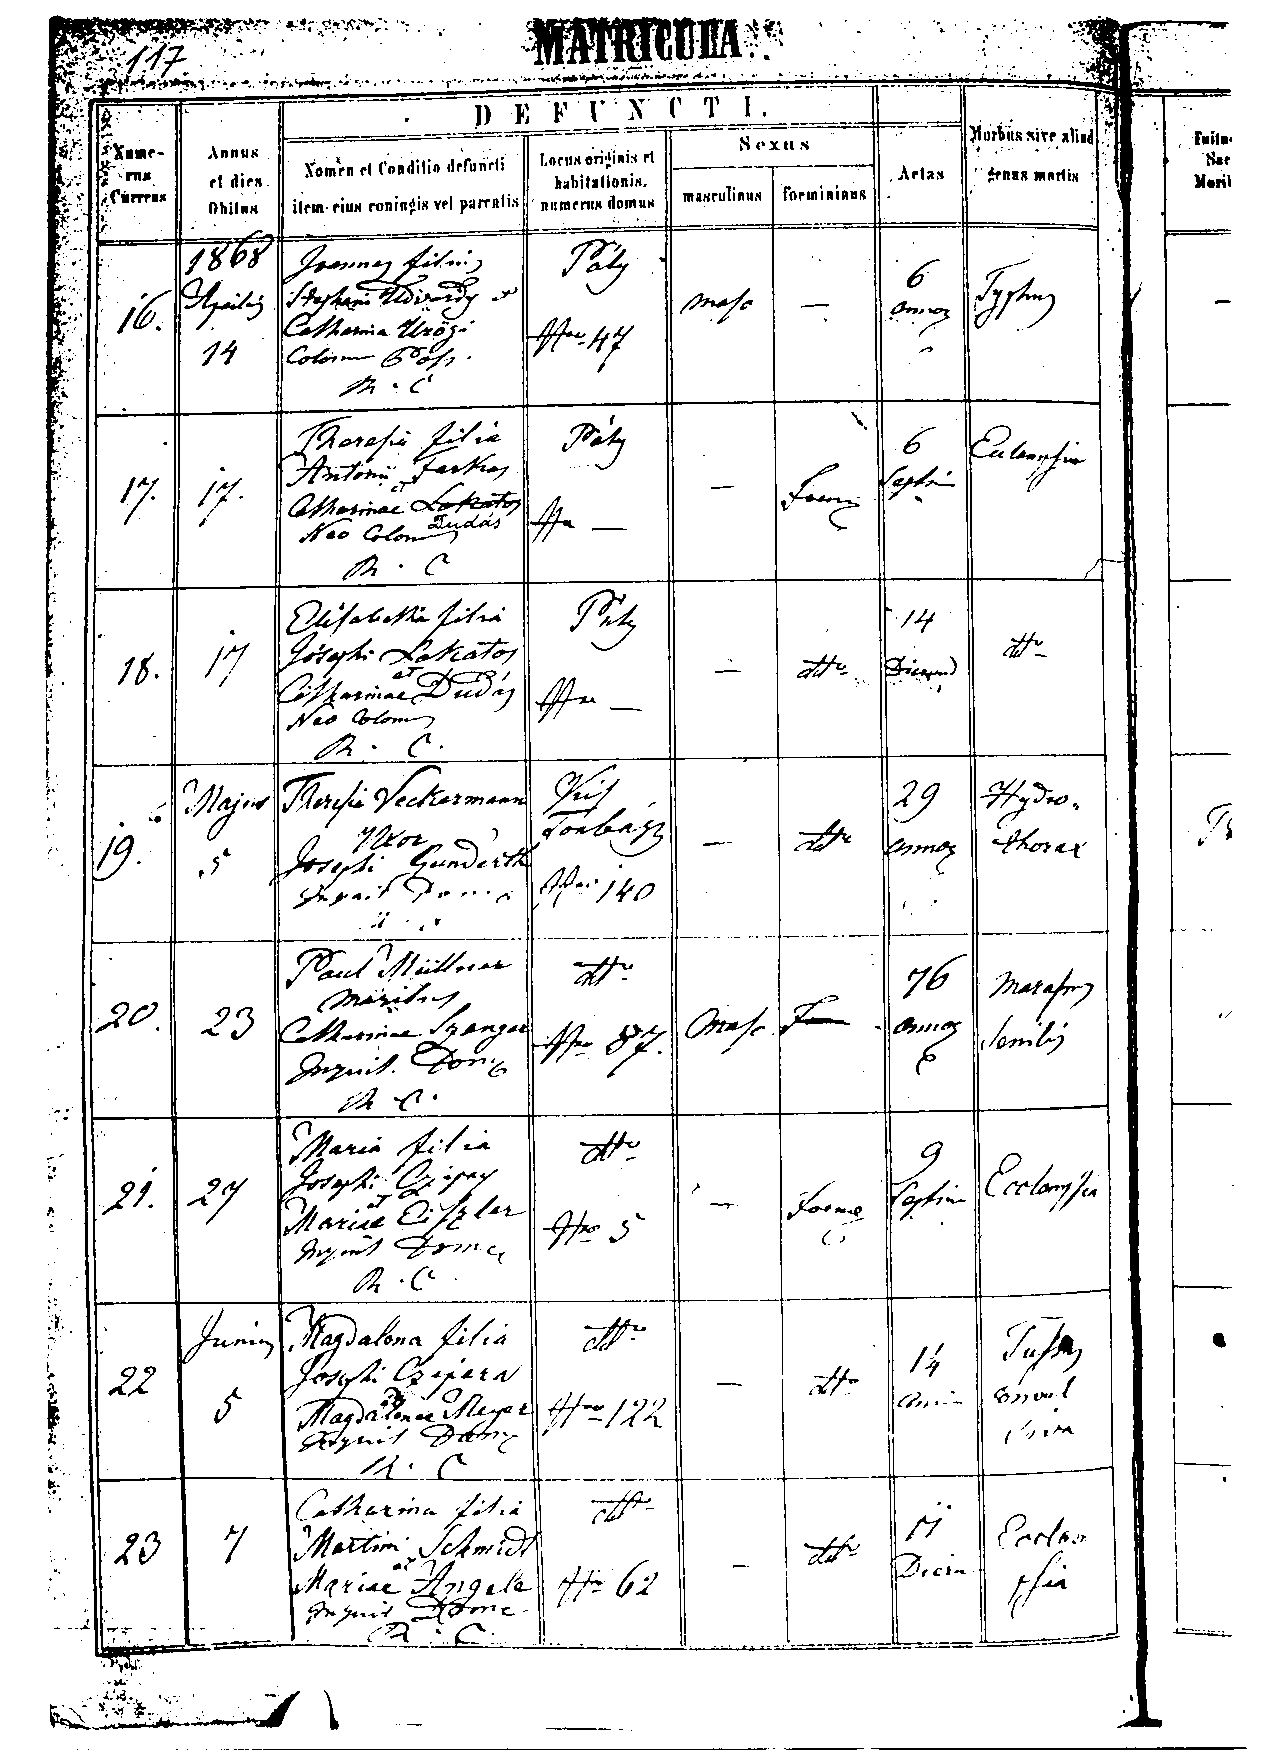 117
MATRICULA
DEFUNCTI.
Nume-
rus
Currens
Annus
et dies
Obitus
Nomen et Conditio defuncti
item eius coniugis vel parentis
Locus originis et
habitationis,
numerus domus
Sexus
masculinus
foemininus
Aetas
Morbus sive aliud
genus mortis
16.
1868
Aprilis
14
Joannes filius
Stephani Udvardy et
Catharina
Colonus
R. C
Páty
Nro 47
masc
—
6
annos
Typhus
17.
17.
Theresia filia
Antonii Farkas
et
Catharinae Lakatos
Dudás
Neo Colonus
R. C
Páty
Nro —
—
Foem
6
Septim
Eclampsia
18.
17
Elisabetha filia
Josephi Lakatos
et
Catharinae Dudás
Neo Colonus
R. C.
Páty
Nro —
—
dtto
14
Dierum
dtto
19.
Majus
5
Theresia Veckermann
Uxor
Josephi Gunderth
Inquil Dom
Torbágy
Nro 140
—
dtto
29
annos
Hydro-
thorax
20.
23
Paul Müllner
maritus
Catharinae
Inquil. Dom
R C.
dtto
Nro 87.
Masc
76
annos
Marasmus
senilis
21.
27
Maria filia
Josephi
et
Mariae Ciszler
Inquil Dom
R. C
dtto
Nro 5
—
Foem
9
Septim
Ecclampsia
22
Junius
5
Magdalena filia
Josephi Czipera
et
Magdalenae Meyer
Inquil Dom
R. C
dtto
Nro 122
—
dtto
14
Tussis
convul
siva
23
7
Catharina filia
Martini Schmidt
et
Mariae Angele
Inquil Dom
R. C.
dtto
Nro 62
—
dtto
17
Dieru
Ecclam
psia